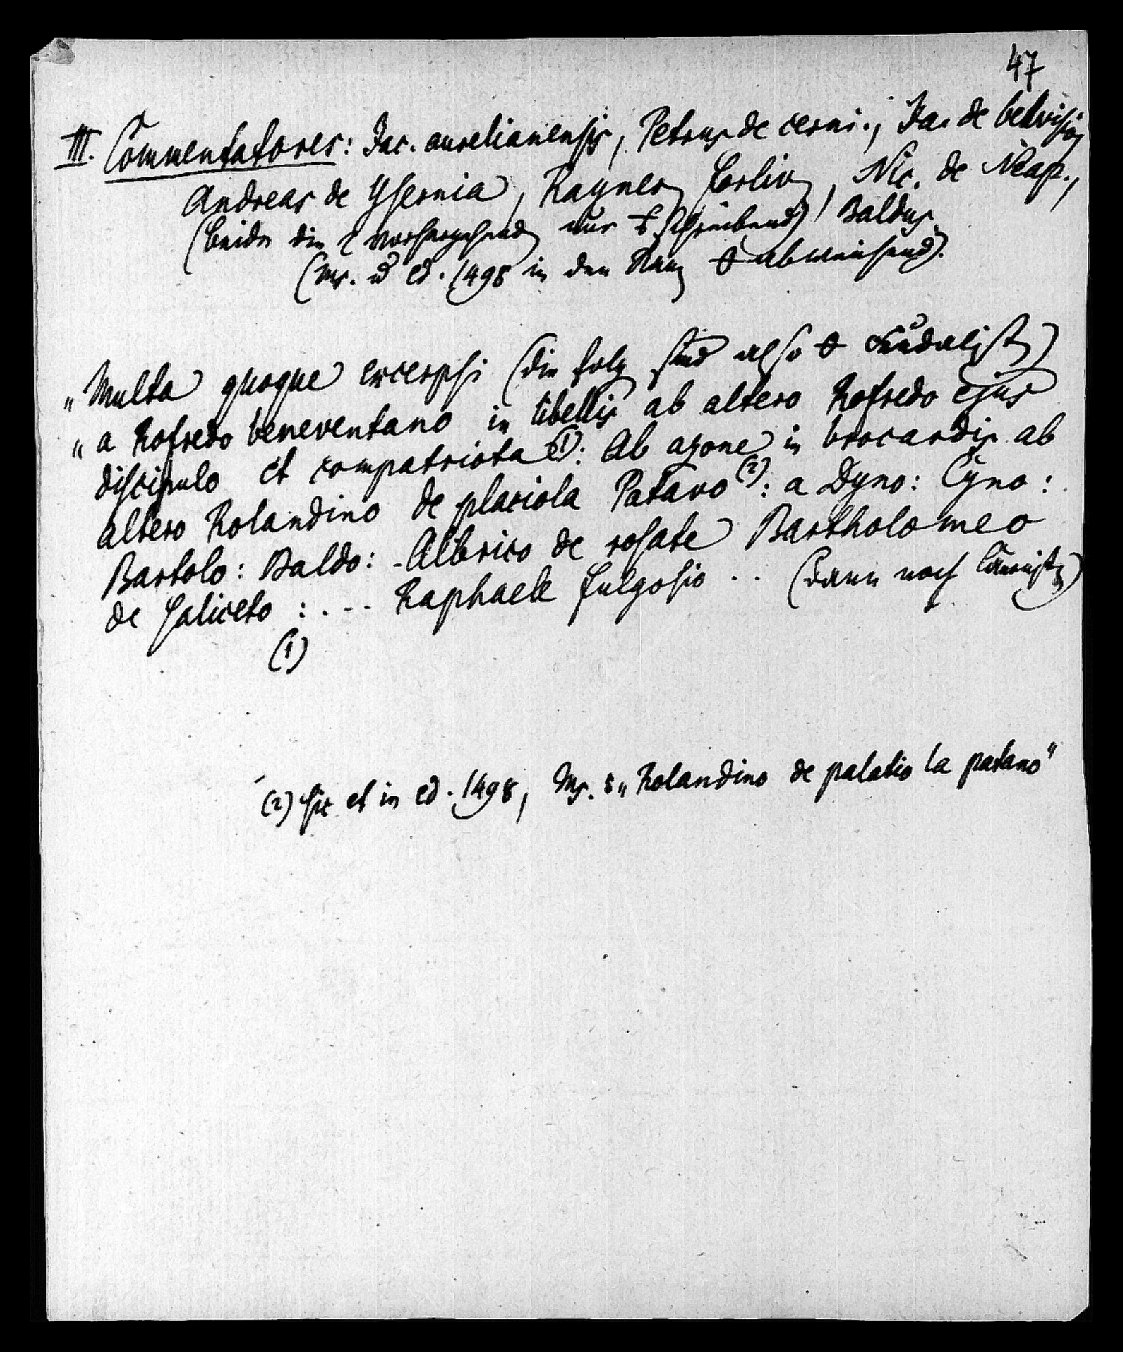 47
III. Commentatores: Jac. aurelianensis, Petrus de cerni., Jac. de belvisio,
Andreas de Ysernia, Rayner, forliv, Nic. de Neap.,
(beide die 2 vorhergehend nur schreibend) Baldus.
(Ms. u ed. 1498 in den abweichend).
„Multa quoque excerpsi (die folg sind also Feudalist)
„a Rofredo beneventano in libellis ab altero Rofredo ejus
discipulo et compatriota (1): Ab azone in brocardis. ab
altero Rolandino de placiola Patavo (2): a Dyno: Cyno:
Bartolo: Baldo: Albrico de rosate Bartholomeo
de saliceto : . -- Raphaele fulgosio .. (dann noch Canonist)
(1)
(2) sic et in ed. 1498, Ms. : „Rolandino de palatio la patano"